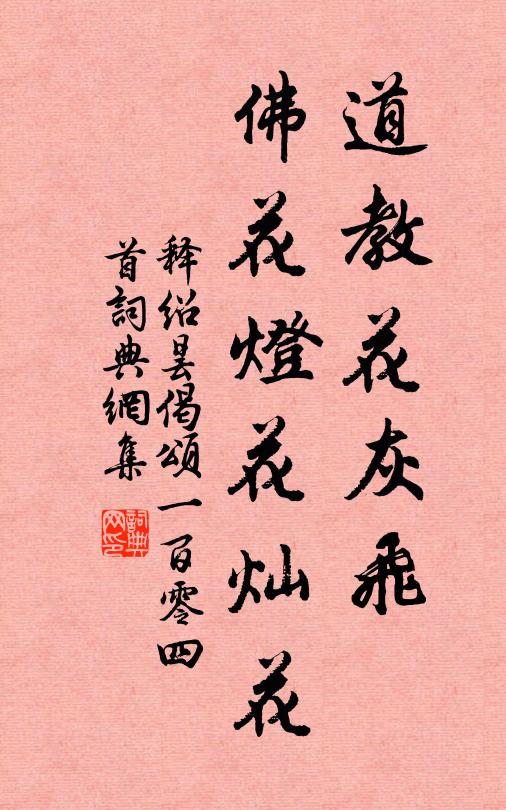 道教花灰飛
佛花燈花灿花
释绍昙偈頌一百零四
首詞典網集
詞典
网印